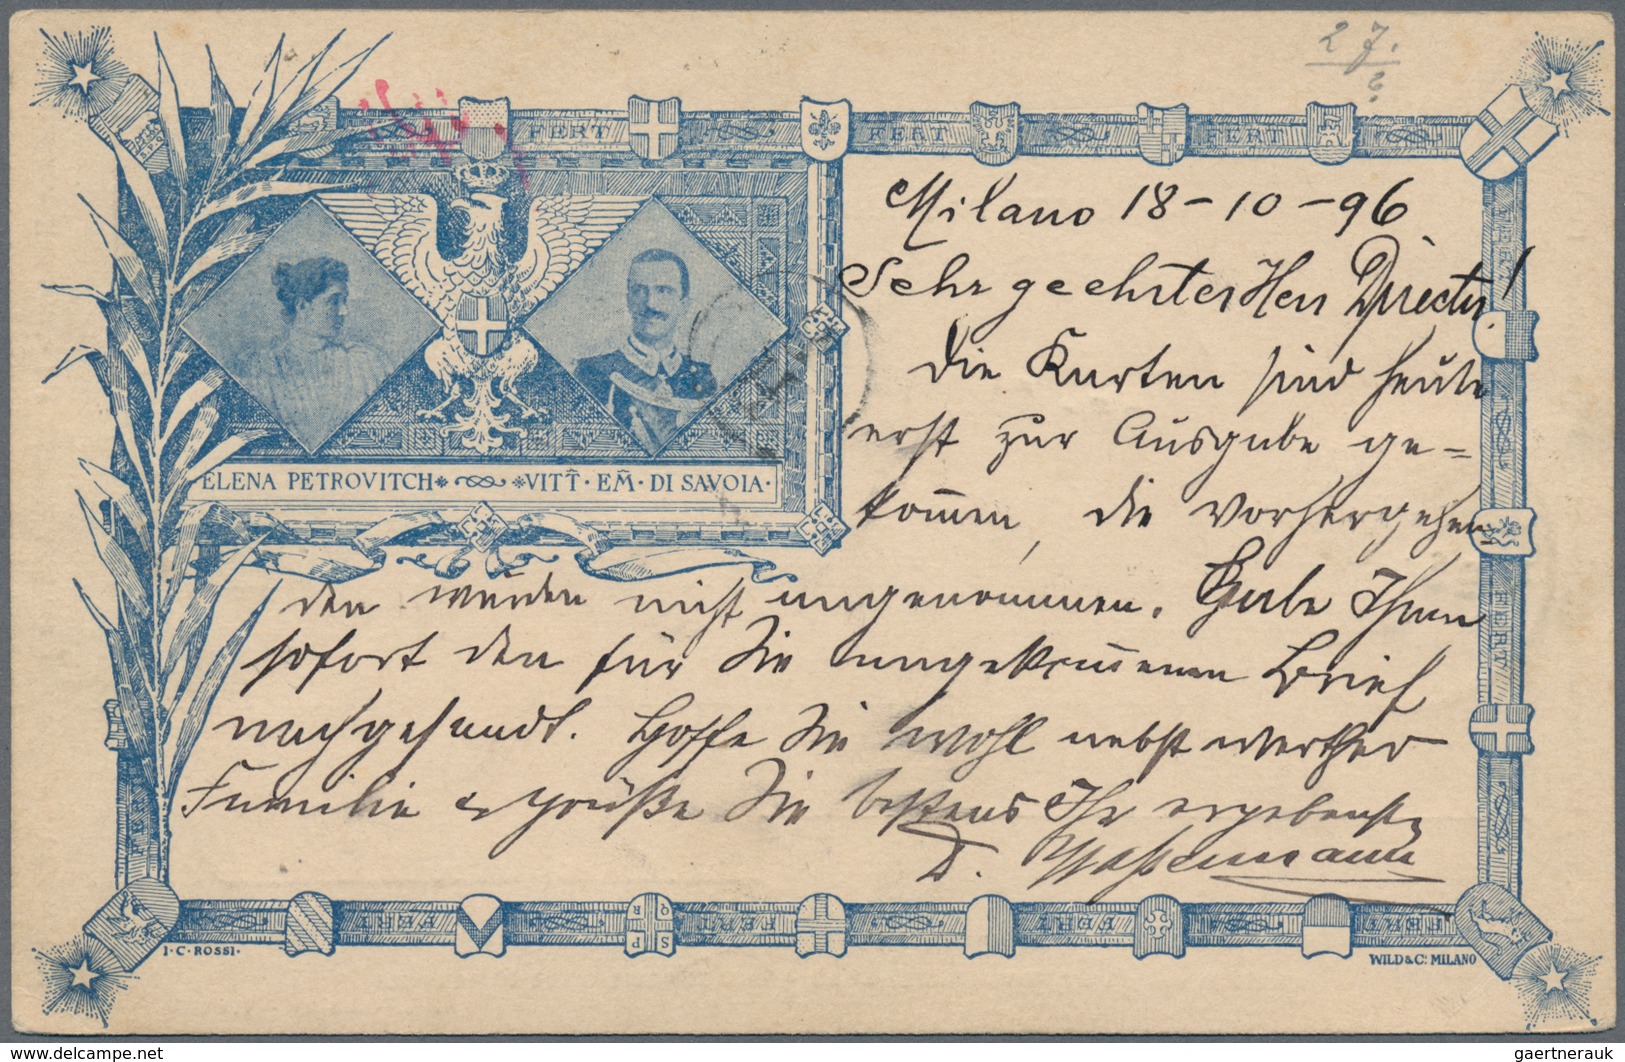 27.
?
FERT FERT FERT
Milano 18-10-96
Sehr geehrter Herr Director!
die Karten sind heute
erst zur Ausgabe ge=
kom̄en, die vorhergehen
den wurden nicht angenommen. Habe Ihnen
sofort den für Sie angekom̄enen Brief
nachgesandt. Hoffe Sie wohl nebst werther
Familie & grüße Sie bestens Ihr ergebenster
D.
ELENA PETROVITCH * * VITT̄ · EM̄ · DI SAVOIA ·
FERT
FERT FERT FERT FERT
S P Q R
I · C · ROSSI ·
WILD & C: MILANO
delcampe.net
gaertnerauk